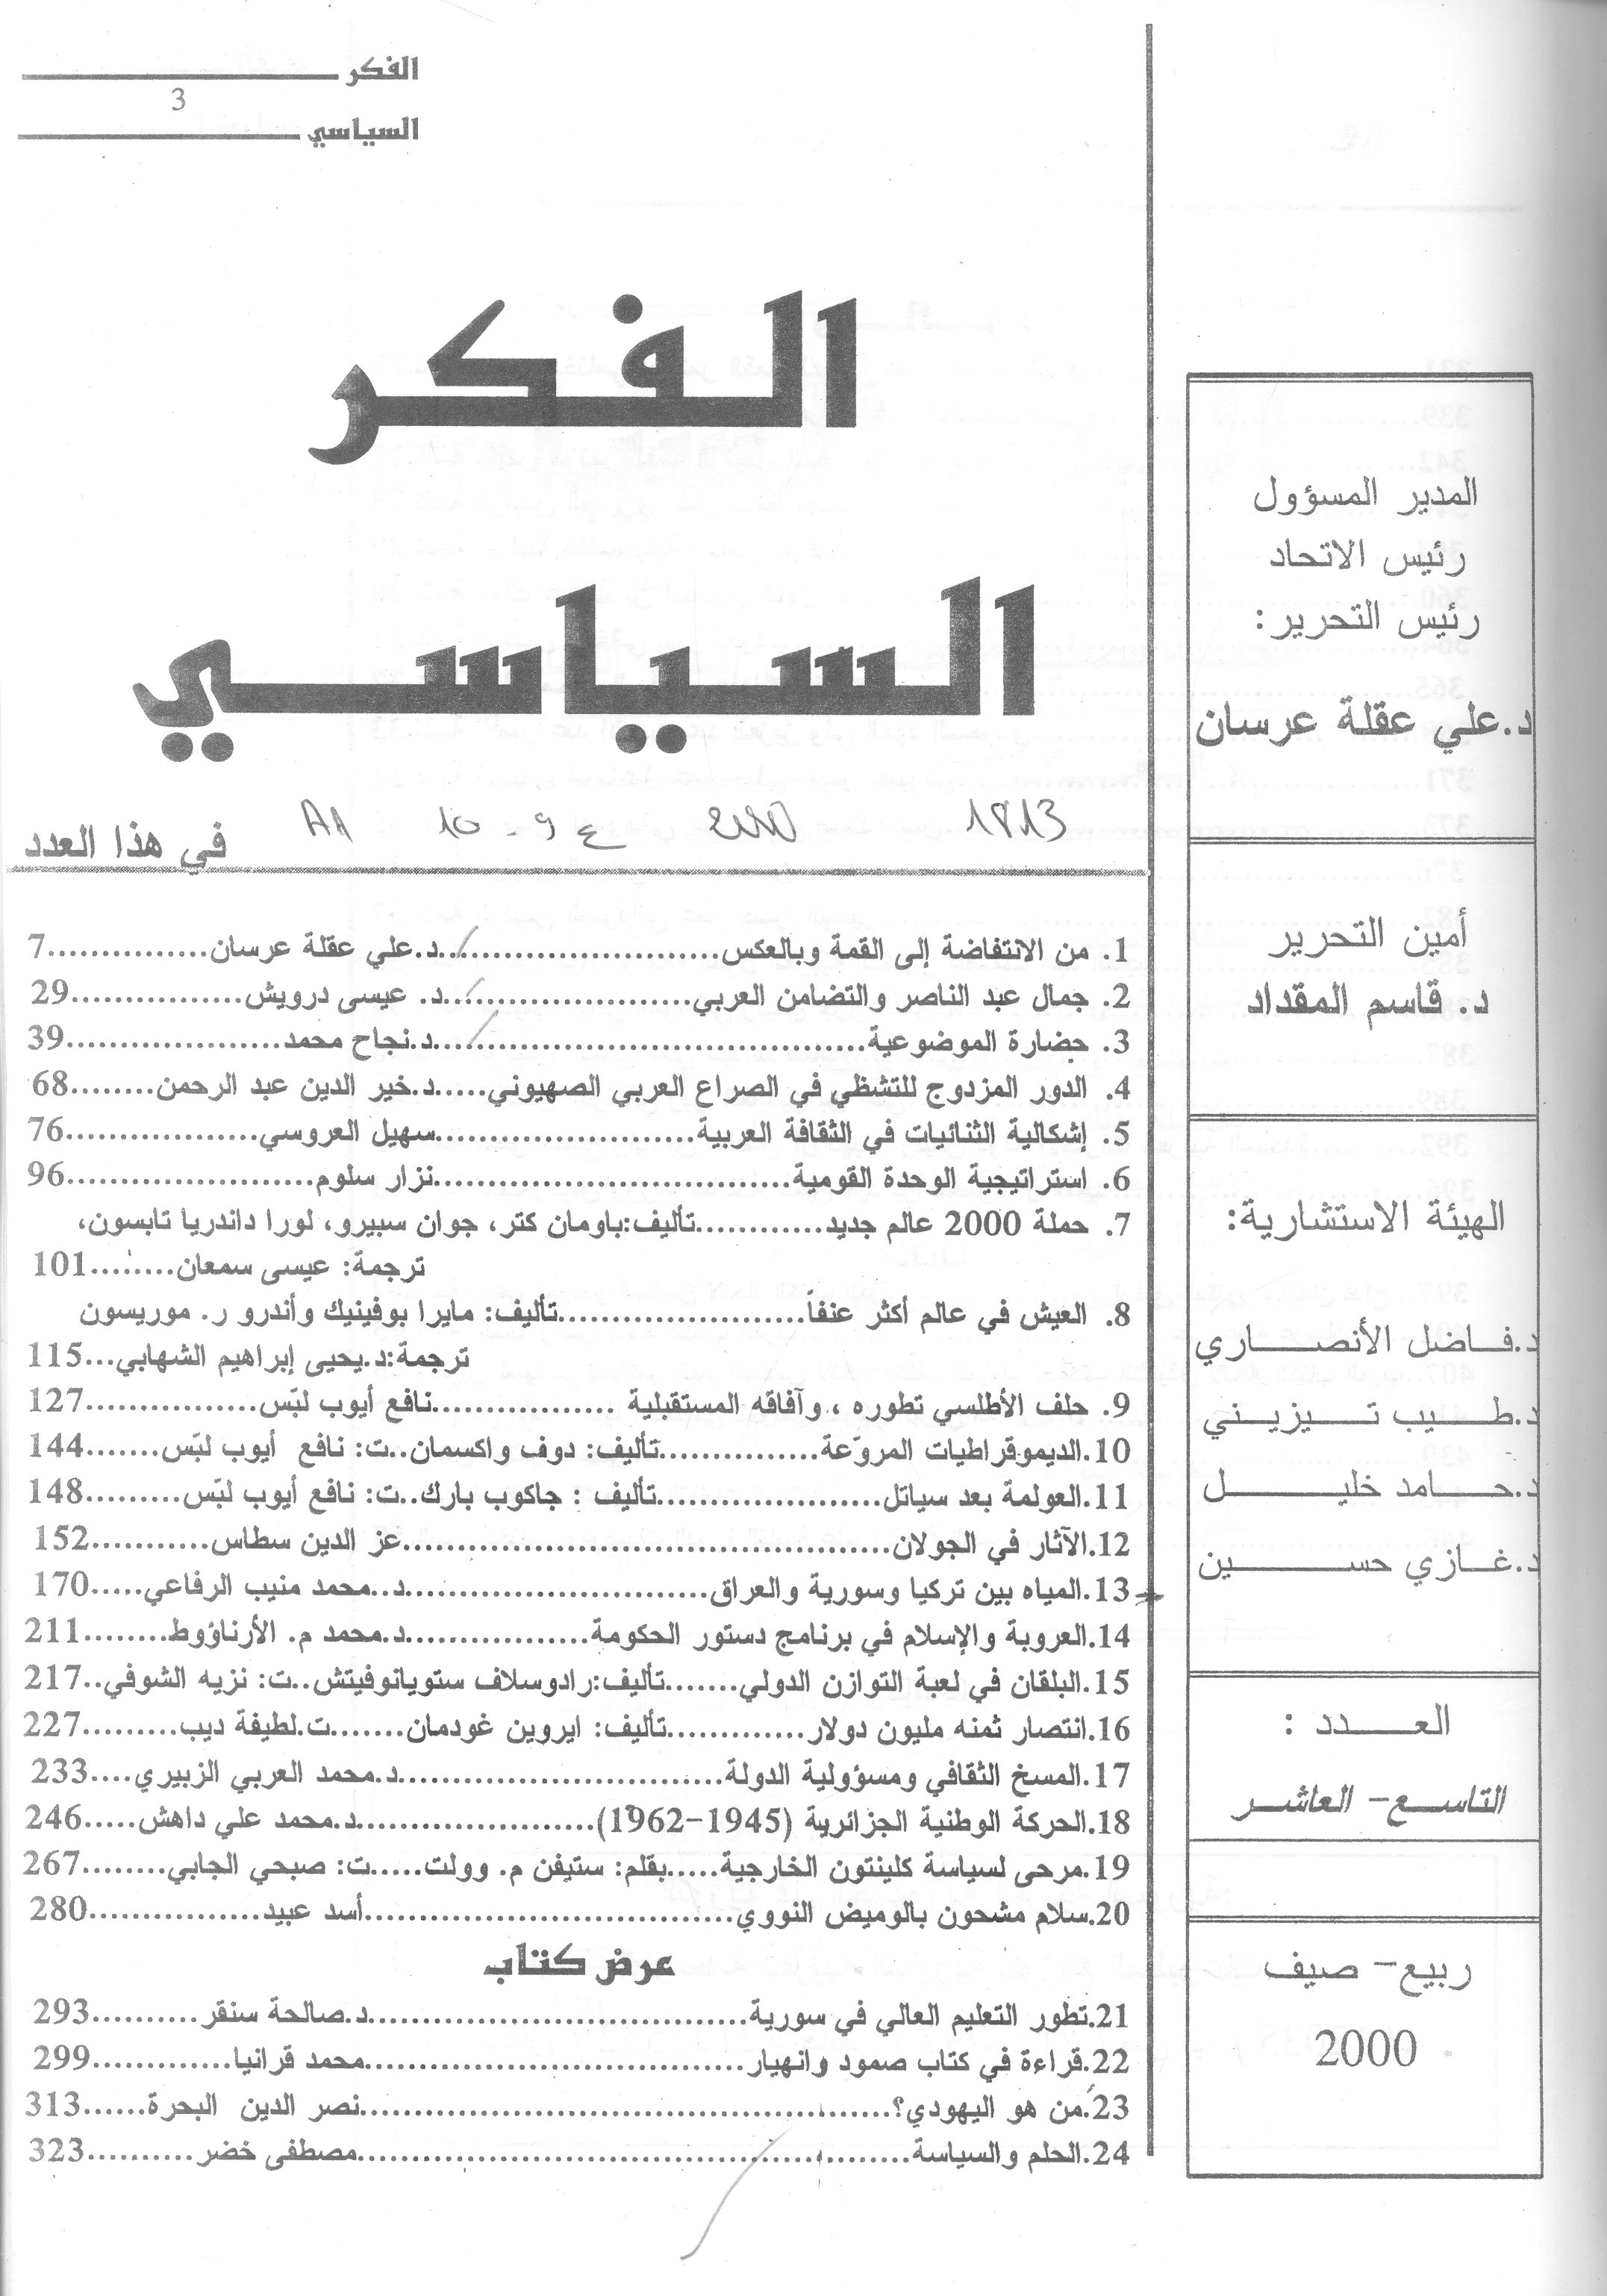 الفكر
3
السياسي
الفكر
السياسي
في هذا العدد
1. من الانتفاضة إلى القمة وبالعكس..........................د.علي عقلة عرسان...............7
2. جمال عبد الناصر والتضامن العربي.......................د. عيسى درويش................29
3. حضارة الموضوعية.......................................د.نجاح محمد....................39
4. الدور المزدوج للتشظي في الصراع العربي الصهيوني.....د.خير الدين عبد الرحمن........68
5. إشكالية الثنائيات في الثقافة العربية.......................سهيل العروسي..................76
6. استراتيجية الوحدة القومية................................نزار سلوم.......................96
7. حملة 2000 عالم جديد............تأليف:باومان كتر، جوان سبيرو، لورا داندريا تايسون،
ترجمة: عيسى سمعان........101
8. العيش في عالم أكثر عنفاً......................تأليف: مايرا بوفينيك وأندرو ر. موريسون
ترجمة:د.يحيى إبراهيم الشهابي...115
9. حلف الأطلسي تطوره ، وآفاقه المستقبلية .................نافع أيوب لبّس................127
10.الديموقراطيات المروّعة..............تأليف: دوف واكسمان..ت: نافع أيوب لبّس.......144
11.العولمة بعد سياتل....................تأليف : جاكوب بارك..ت: نافع أيوب لبّس.........148
12.الآثار في الجولان............................................عز الدين سطاس...........152
13.المياه بين تركيا وسورية والعراق...........................د..محمد منيب الرفاعي.....170
14.العروبة والإسلام في برنامج دستور الحكومة................د.محمد م. الأرناؤوط........211
15.البلقان في لعبة التوازن الدولي.......تأليف:رادوسلاف ستويانوفيتش..ت: نزيه الشوفي..217
16.انتصار ثمنه مليون دولار.............تأليف: ايروين غودمان.......ت.لطيفة ديب.........227
17.المسخ الثقافي ومسؤولية الدولة.............................د.محمد العربي الزبيري....233
18.الحركة الوطنية الجزائرية (1945-1962)......................د.محمد علي داهش.....246
19.مرحى لسياسة كلينتون الخارجية.....بقلم: ستيفن م. وولت.....ت: صبحي الجابي........267
20.سلام مشحون بالوميض النووي..................................أسد عبيد................280
عرض كتاب
21.تطور التعليم العالي في سورية..................................د.صالحة سنقر..........293
22.قراءة في كتاب صمود وانهيار..................................محمد قرانيا.............299
23.من هو اليهودي؟................................................نصر الدين البحرة......313
24.الحلم والسياسة..................................................مصطفى خضر..........323
المدير المسؤول
رئيس الاتحاد
رئيس التحرير:
د.علي عقلة عرسان
أمين التحرير
د. قاسم المقداد
الهيئة الاستشارية:
د.فاضل الأنصاري
د.طيب تيزيني
د.حامد خليل
د.غازي حسين
العدد :
التاسع- العاشر
ربيع- صيف
2000